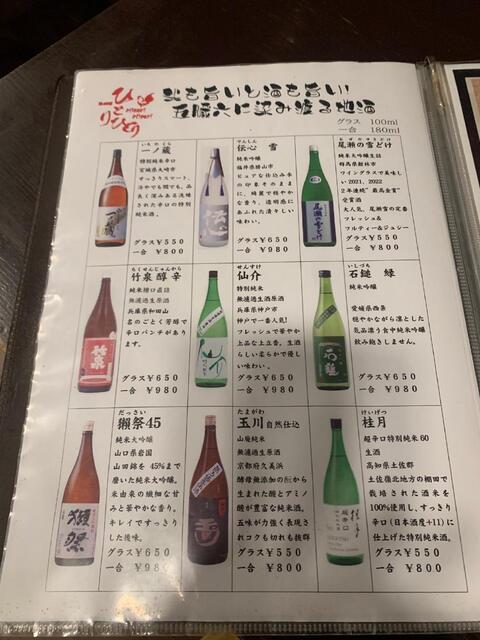 ひとりひとり
Hitori Hitori
火も旨いと酒も旨い!
五臓六に染み渡る地酒
グラス 100ml
一合 180ml
いちのくら
一ノ蔵
特別純米辛口
宮城県大崎市
すっきりスマート、
冷やでも燗でも、品
良く深みある洗練
された辛口の特別
純米酒。
グラス¥550
一合 ¥800
でんしん
伝心 雪
純米吟醸
福井県勝山市
ピュアな仕込み水
の印象そのまま
に、綺麗で穏やか
な香り、透明感に
あふれた清々しい
味わい。
グラス¥650
一合 ¥980
おぜのゆきどけ
尾瀬の雪どけ
純米大吟醸生詰
群馬県館林市
ワイングラスで美味
しい2021、2022
2年連続"最高金賞"
受賞酒
大人気、尾瀬雪の定番
フレッシュ&
フルティー&ジュシー
グラス¥550
一合 ¥800
ちくせんじゅんから
竹泉醇辛
純米槽口直詰
無濾過生原酒
兵庫県和田山
名のごとく芳醇で
辛口パンチがあり
ます。
グラス¥650
一合 ¥980
せんすけ
仙介
特別純米
無濾過生酒原酒
兵庫県神戸市
神戸で一番人気!
フレッシュで華やか
上品な上立香。生酒
らしい柔らかで優し
い味わい。
グラス¥650
一合 ¥980
いしづち
石鎚 緑
純米吟醸
愛媛県西条
穏やかながら凛とした
気品漂う食中純米吟醸
飲み飽きしません。
グラス¥650
一合 ¥980
だっさい
獺祭45
純米大吟醸
山口県岩国
山田錦を45%まで
磨いた純米大吟醸。
米由来の繊細な甘
みと華やかな香り。
キレイですっきりし
た後味。
グラス¥650
一合 ¥980
たまがわ
玉川自然仕込
山廃純米
無濾過生原酒
京都府久美浜
酵母無添加の酛から
生まれた酸とアミノ
酸が豊富な純米酒。
五味が力強く表現さ
れコクも切れも抜群
グラス¥550
一合 ¥800
けいげつ
桂月
超辛口特別純米60
生酒
高知県土佐郡
土佐嶺北地方の棚田で
栽培された酒米を
100%使用し、すっきり
辛口(日本酒度+11)に
仕上げた特別純米酒。
グラス¥550
一合 ¥800